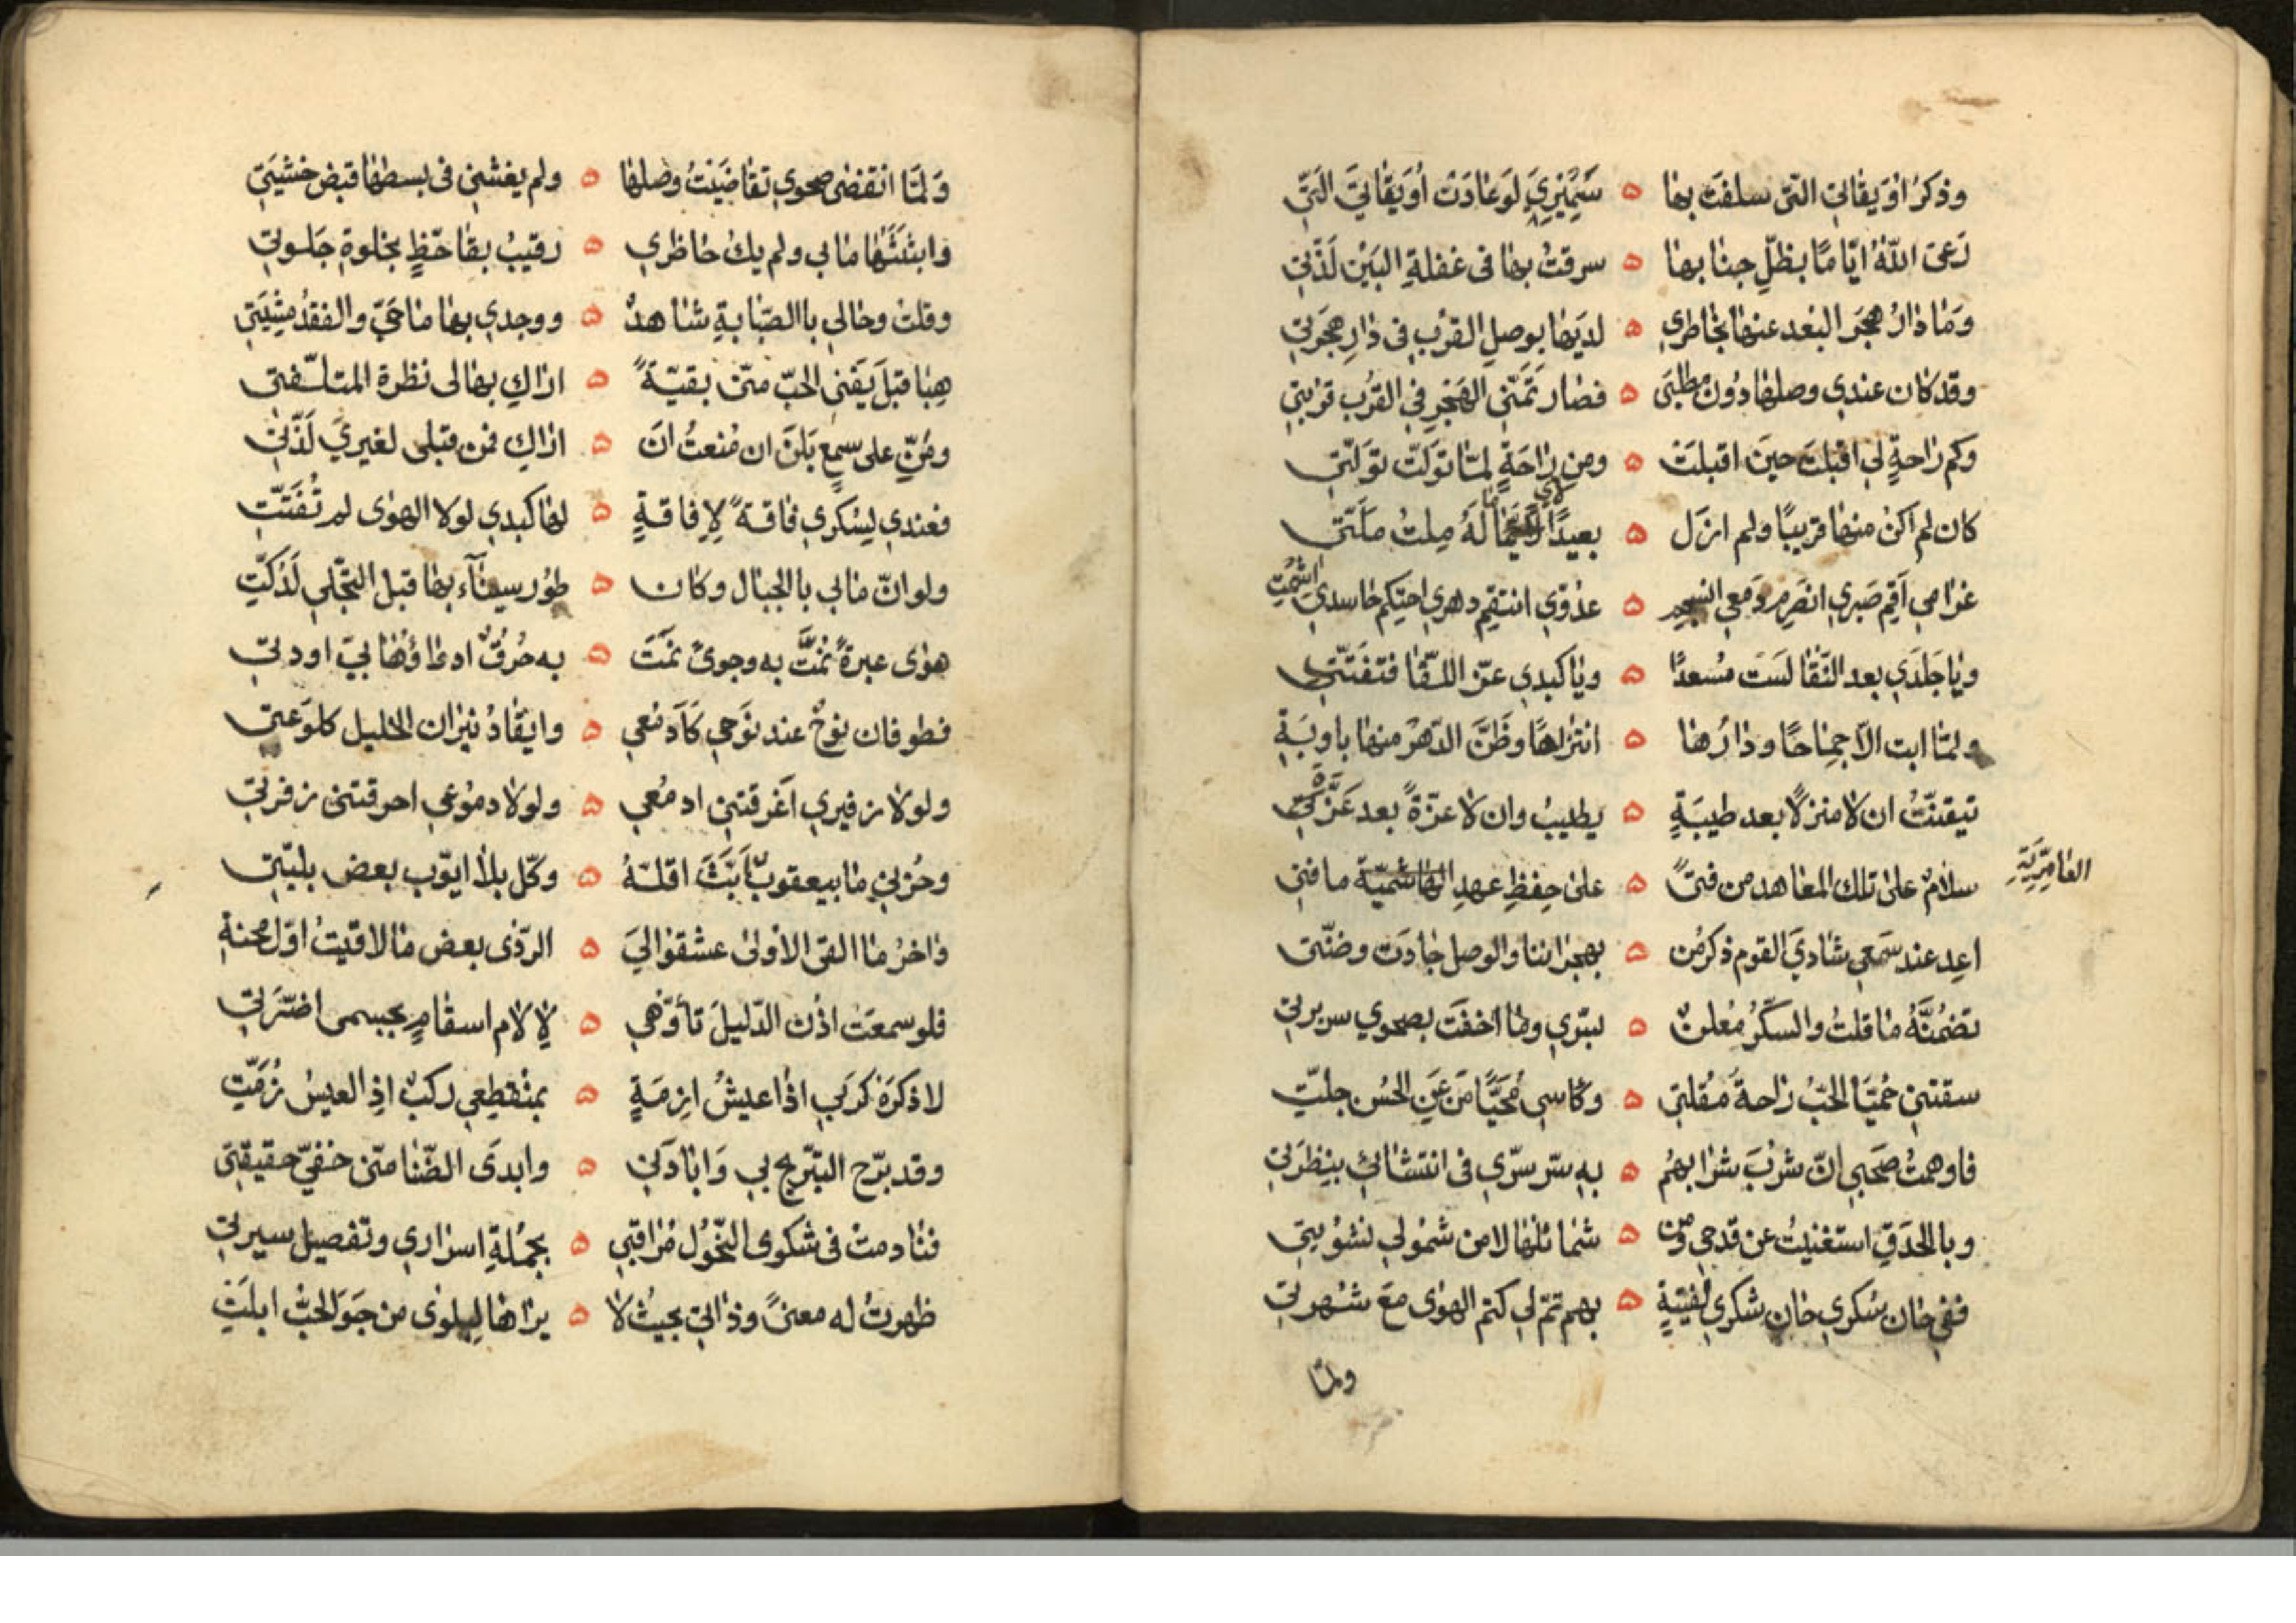 وذكرُ اوَيقاتي التّي سلفَت بها ٥ سَميْري لوَعادَت اُوَيقاتيَ الَتّي
رَعىَ اللّهُ ايّامًا بظلّ جنابها ٥ سرقتُ بها فى غفلةِ البَيْن لَذّتي
وَمٰا دٰارُ هجَر البُعد عنها بخاطري ٥ لديَها بوصلِ القرْب فى دٰارِ هجَرتي
وقد كان عندي وصلها دُون مطلبَى ٥ فصٰار تَمَنّى الهَجْر فِى القرُب قربَتي
وكم رٰاحةٍ لي اقبلتَ حينَ اقبلتَ ٥ ومن رٰاحَةٍ لمّا تولّت تولّتي
كان لم اكنْ منها قريبًا ولم ازل ٥ بعيدًا لاي ما لَهُ مِلتُ ملَتّى
غرٰامي اَقم صَبري انصَرِم دَمعي انسجم ٥ عدُوّي انتقم دهري احتكم حاسدي اشمُتِ
ويٰا جَلدَي بعد النّقٰا لسَت مُسعدًا ٥ ويٰا كبدي عزّ اللّقا فتفَتّتي
ولمّا ابت الاّ جمٰاحًا ودٰارُها ٥ انتزٰاحًا وظَنَّ الدّهرُ منها باوبَةِ
تيقنّتُ ان لا منزلاً بعد طيبَةٍ ٥ يطيبُ وان لا عزّةً بعد عَزّةِ
سلامٌ على تلك المعٰاهد من فتىً ٥ على حِفظِ عهدِ الهاشميّة ما فتي
العٰامِرِيّةِ
اعِد عند سَمعي شادَيَ القوم ذكرُ من ٥ بهجرٰاننا والوصل جٰادَت وضنّتى
تضمُنَّهُ ما قلتُ والسكرُ مُعلنٌ ٥ لسّري وما اخفَت بصحوي سريرتي
سقتني حُميَّا الحبّ رٰاحةُ مُقلتي ٥ وكاسي مُحَيًّا مَن عَنِ الحُسن جلّتِ
فاوهمتُ صَحَبي انّ شربَ شرٰابهمُ ٥ بهِ سّر سرّي فى انتشائي بنِظرَتي
وبالحَدَقِ استغنيتُ عن قدحي ومن ٥ شمٰائلها لا من شمُولي نشوُتي
ففي حٰان سُكري حٰان شكري لفِتيةٍ ٥ بهم تمّ لي كتم الهوٰى معَ شهرتي
ولمّا
وَلمّا انقضى صحوي تقاضَيتُ وصلها ٥ ولم يغشني فى بسطها قبض خشيَتي
وابثثتُها مابي ولم يكُ حاظري ٥ رقيبُ بقا حَظٍ بخلوةِ جَلوتي
وقلت وحالي باالصّبابةِ شاهدٌ ٥ ووجدي بها ماحيّ والفقدُ مثِبتَي
هبٰا قبلَ يَفنى الحبّ منّى بقيّةً ٥ ارٰاكِ بها لى نظرة المتلفّتى
ومُنّي على سمعٍ بَلنَ ان مُنعتُ انَ ٥ ارٰاكِ فمن قبلى لغيريَ لَذّتي
فعندي لِسُكري فاقةً لاِفاقةٍ ٥ لها كبدي لولا الهوٰى لم تُفَتّتِ
ولو انّ مابي بالجبال وكان ٥ طوُر سينآء بها قبل التجّلي لَدُكّتِ
هوٰى عبرةً نمَتَّ به وجوىً نمَتَ ٥ به حُرقٌ ادوٰاؤُها بيَ اودتي
فطوفان نوحْ عند نَوحي كَاَدمُعي ٥ وايقادُ نيرٰان الخليل كلوَعتى
ولولا زفيري اغَرقتني ادمُعي ٥ ولولا دموُعي احرقتنى زفرتي
وحُزني ما يعقوبٌ بَثَّ اقلّهُ ٥ وكّل بلاٰ ايوّب بعض بليّتي
واٰخرُ ما القى الاوُلى عشقوٰا اليَ ٥ الرّدٰى بعض ما لاقيتُ اوّل محنةِ
فلو سمعَت اذُن الدّليلَ تأوّهي ٥ لِاٰلام اسقامٍ بجسمى اضَرّتِ
لاذكرَهَ كرَبي اذا عيشُ ازِمَةٍ ٥ بمُنقطِعي ركبٌ اذِ العيس زُمّتِ
وقد برّح التّبريح بي وَابادَني ٥ وابدَى الضّنا منّى خفيّ حقيقَتى
فنادمت فى شكوى النّحوُل مُرٰاقبي ٥ بجُملةِ اسرٰاري وتفصيل سيرتي
ظهرتُ له معنىً وذٰاتي بحيثُ لا ٥ يرٰاها لبلوٰى من جوَى الحبّ ابلَتِ